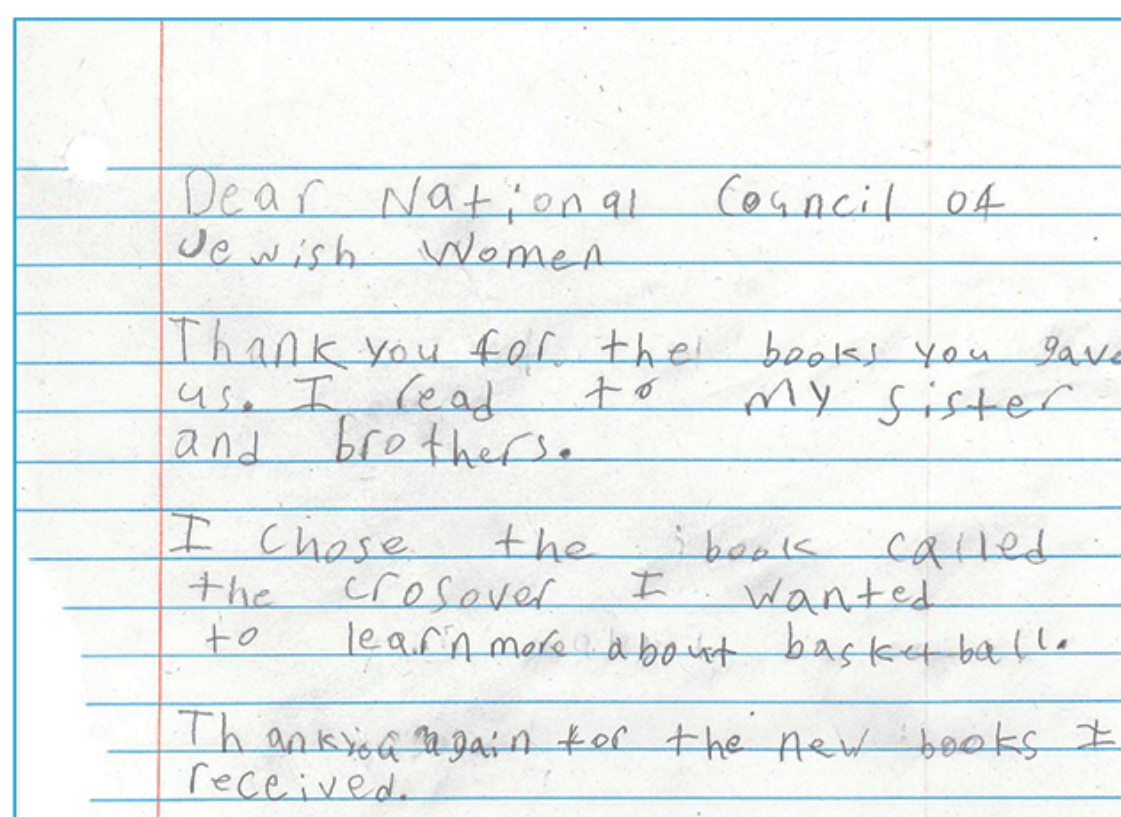 Dear National Council of
Jewish Women
Thank you for the books you gave
us. I read to my sister
and brothers.
I chose the book called
the crosover I wanted
to learn more about basketball.
Thank you again for the new books I
received.